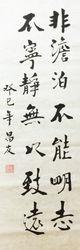 非澹泊不能明志
不寧靜無以致遠
癸巳年昌友